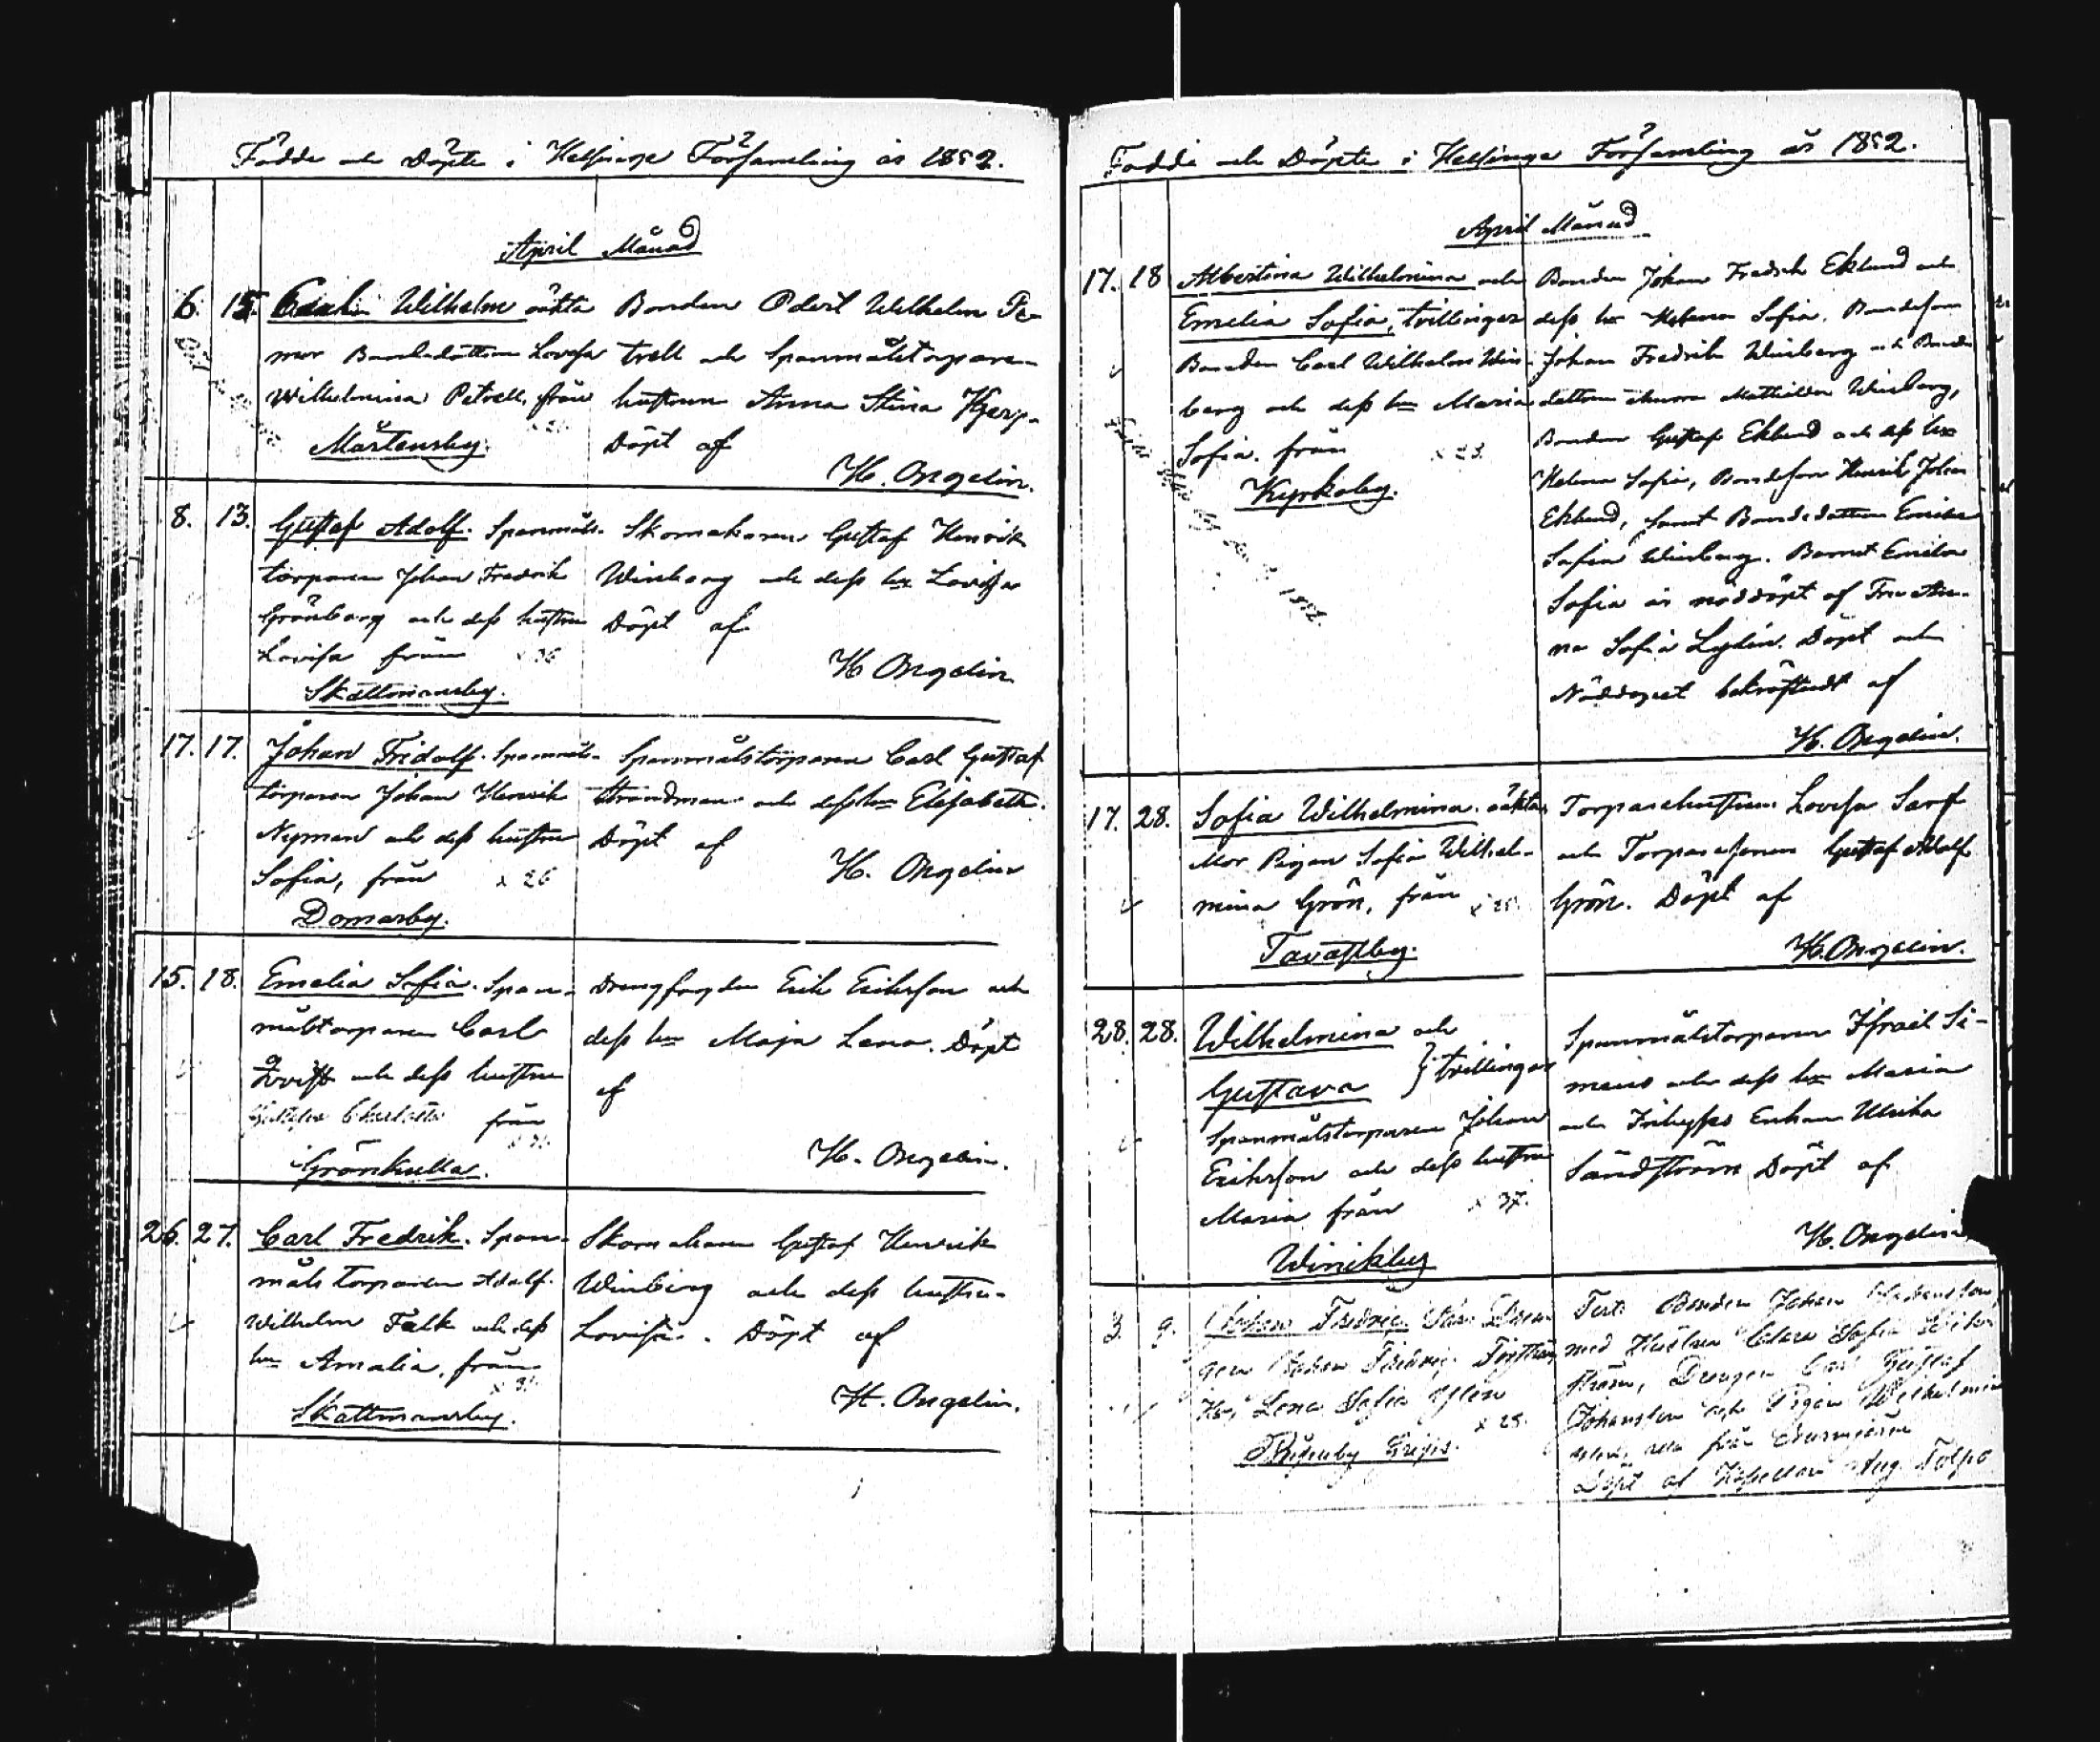 Födde och Döpte i Helsinge Församling år 1852.
April Månad
6. 15. Wilhelm oäkta
mor Bondedottren Lovisa
Wilhelmina Petrell, från
Mårtensby.
Bonden Odert Wilhelm Pe-
trell och Spanmålstorpare-
hustrun Anna Stina Kjerp.
Döpt af
H. Ongelin.
8. 13. Gustaf Adolf. Spanmåls-
torparen Johan Fredrik
Grönberg och dess hustru
Lovisa från x 36
Skattmansby.
Skomakaren Gustaf Henrik
Winberg och dess hu Lovisa
Döpt af
H Ongelin
17. 17. Johan Fridolf. Spanmåls-
torparen Johan Henrik
Nyman och dess hustru
Sofia, från x 26
Domarby.
Spanmålstorparen Carl Gustaf
Strandman och dess hu Elisabeth.
Döpt af
H. Ongelin
15. 18. Emelia Sofia. Span-
målstorparen Carl
Qvist och dess hustru
Charlotta från
Grönkulla.
Drengfogden Erik Erikson och
dess hu Maja Lena. Döpt
af
H. Ongelin.
26. 27. Carl Fredrik. Span-
måls torparen Adolf
Wilhelm Falk och dess
hu Amalia, från
Skattmansby.
Skomakaren Gustaf Henrik
Winberg och dess hustru
Lovisa. Döpt af
H. Ongelin.
Födde och Döpte i Helsinge Församling år 1852.
April Månad
17. 18 Albertina Wilhelmina och
Emelia Sofia, tvillingar
Bonden Carl Wilhelm Win-
berg och dess hu Maria
Sofia. från x 23.
Kyrkoby.
1852
Bonden Johan Fredrik Eklund och
dess hu Helena Sofia, Bondeson
Johan Fredrik Winberg och Bonde
dottren Mathilda Winberg,
Bonden Gustaf Eklund och dess hu
Helena Sofia, Bondeson Henrik Johan
Eklund, samt Bondedottren Emilia
Sofia Winberg. Barnet Emilia
Sofia är nöddöpt af Fru An-
na Sofia Lydén. Döpt och
Nöddopet bekräftadt af
H. Ongelin.
17. 28. Sofia Wilhelmina. oäkta,
Mor Pigan Sofia Wilhel-
mina Grön, från
Tavastby.
Torparehustrun Lovisa Sarf
och Torparesonen Gustaf Adolf
Grön. Döpt af
H. Ongelin.
28. 28. Wilhelmina och
Gustava } tvillingar
Spanmålstorparen Johan
Erikson och dess hustru
Maria från x 37.
Winikby
Spanmålstorparen Israel Si-
meius och dess hu Maria
och Enkan Ulrika
Sandström Döpt af
H. Ongelin
3. 9. Johan Fredric
gen Johan Fredric
Hu, Lena Sofia x 28.
Test: Bonden Johan
med Hustrun Clara Sofia
ström, Drengen Carl Gustaf
Johansson och Pigan Wilhelmina
alla från
Döpt af Kapellan Aug.